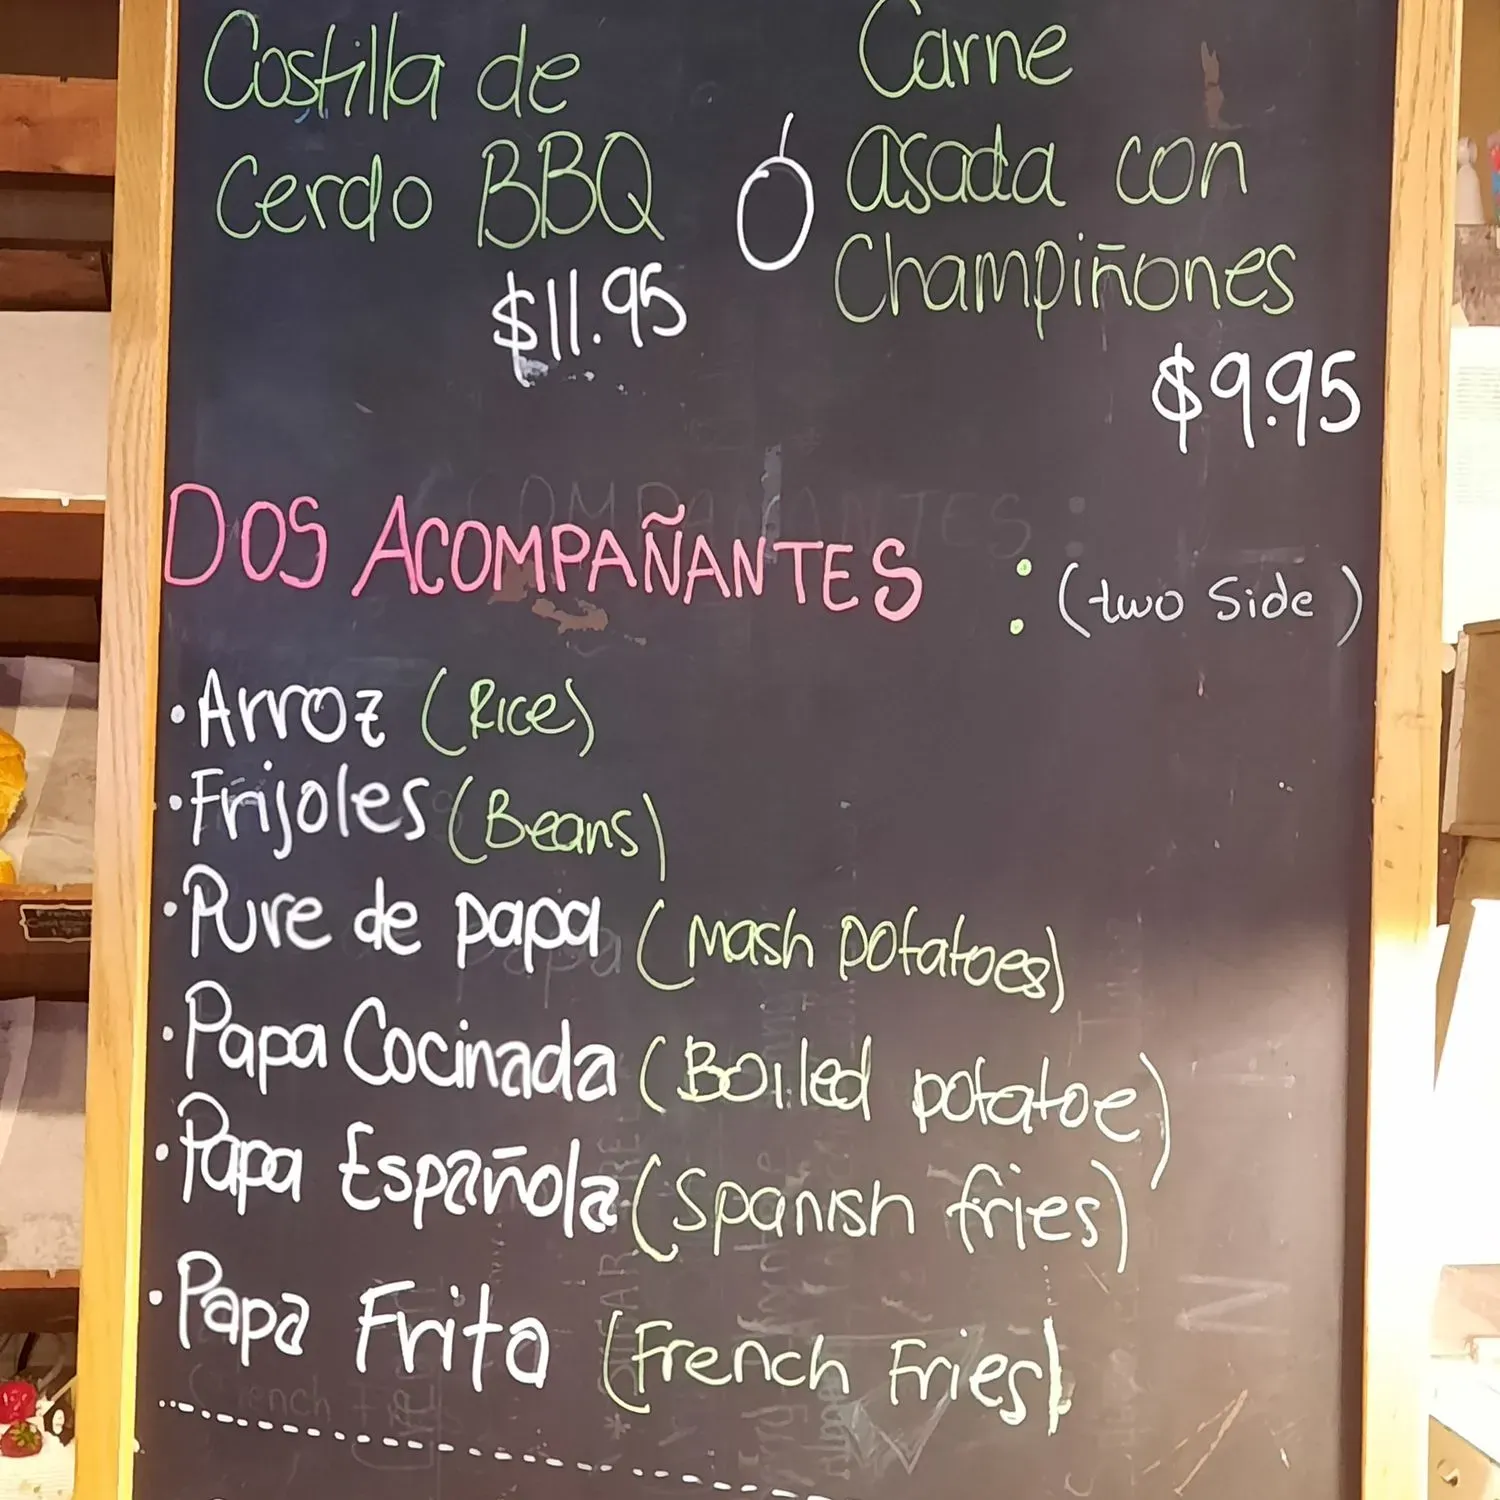 Costilla de
cerdo BBQ
$11.95
Ó
Carne
asada con
Champiñones
$9.95
DOS ACOMPAÑANTES : (two Side)
·Arroz (Rice)
·Frijoles (Beans)
·Pure de papa (Mash potatoes)
·Papa Cocinada (Boiled potatoe)
·Papa Española (Spanish fries)
·Papa Frita (French Fries)